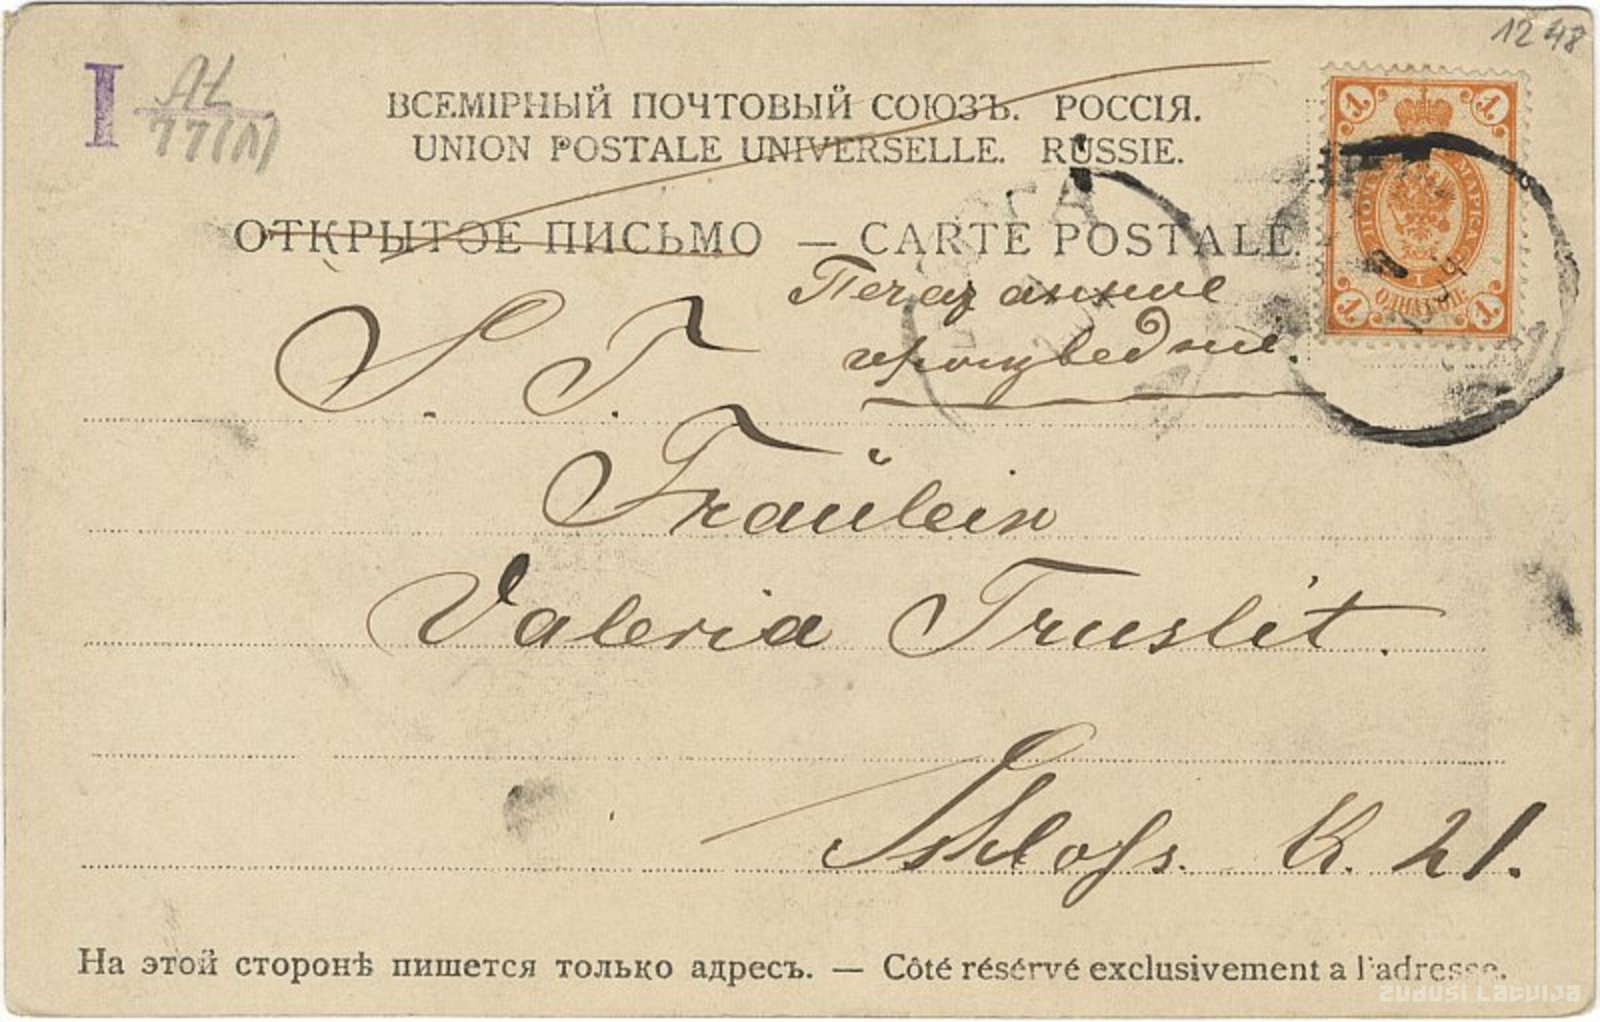 12 48
I AL
77(N)
ВСЕМІРНЫЙ ПОЧТОВЫЙ СОЮЗЪ. РОССІЯ.
UNION POSTALE UNIVERSELLE. RUSSIE.
ОТКРЫТОЕ ПИСЬМО — CARTE POSTALE.
1 1
МАРКА
1
ОДНА КОП.
1 1
S. T.
Fräulein
Valeria Truslit.
Schloss. K. 21.
На этой сторонѣ пишется только адресъ. — Côté résérvé exclusivement a l'adresse.
zudusi Latvija